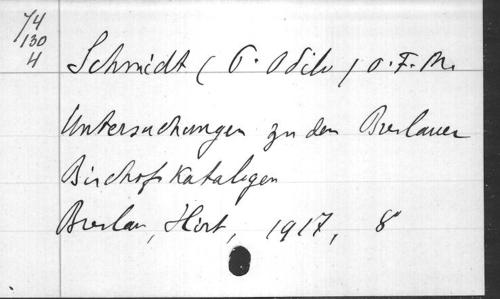 74
130
4
Schmidt (P. Odilo) O.F.M.
Untersuchungen zu den Breslauer
Bischofskatalogen
Breslau, Hirt, 1917, 8°